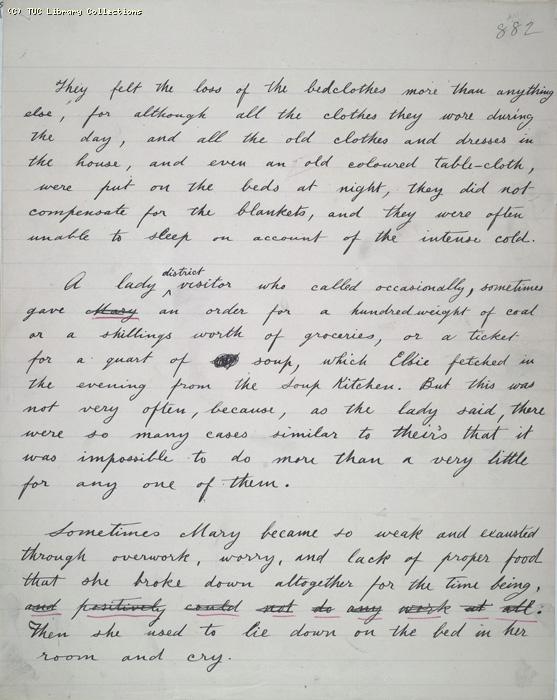 (C) TUC Library Collections
882
They felt the loss of the bedclothes more than anything
else, for although all the clothes they wore during
the day, and all the old clothes and dresses in
the house, and even an old coloured table-cloth,
were put on the beds at night, they did not
compensate for the blankets, and they were often
unable to sleep on account of the intense cold.
A lady district visitor who called occasionally, sometimes
gave Mary an order for a hundredweight of coal
or a shillings worth of groceries, or a ticket
for a quart of soup, which Elsie fetched in
the evening from the Soup Kitchen. But this was
not very often, because, as the lady said, there
were so many cases similar to their's that it
was impossible to do more than a very little
for any one of them.
Sometimes Mary became so weak and exausted
through overwork, worry, and lack of proper food
that she broke down altogether for the time being,
and positively could not do any work at all.
Then she used to lie down on the bed in her
room and cry.